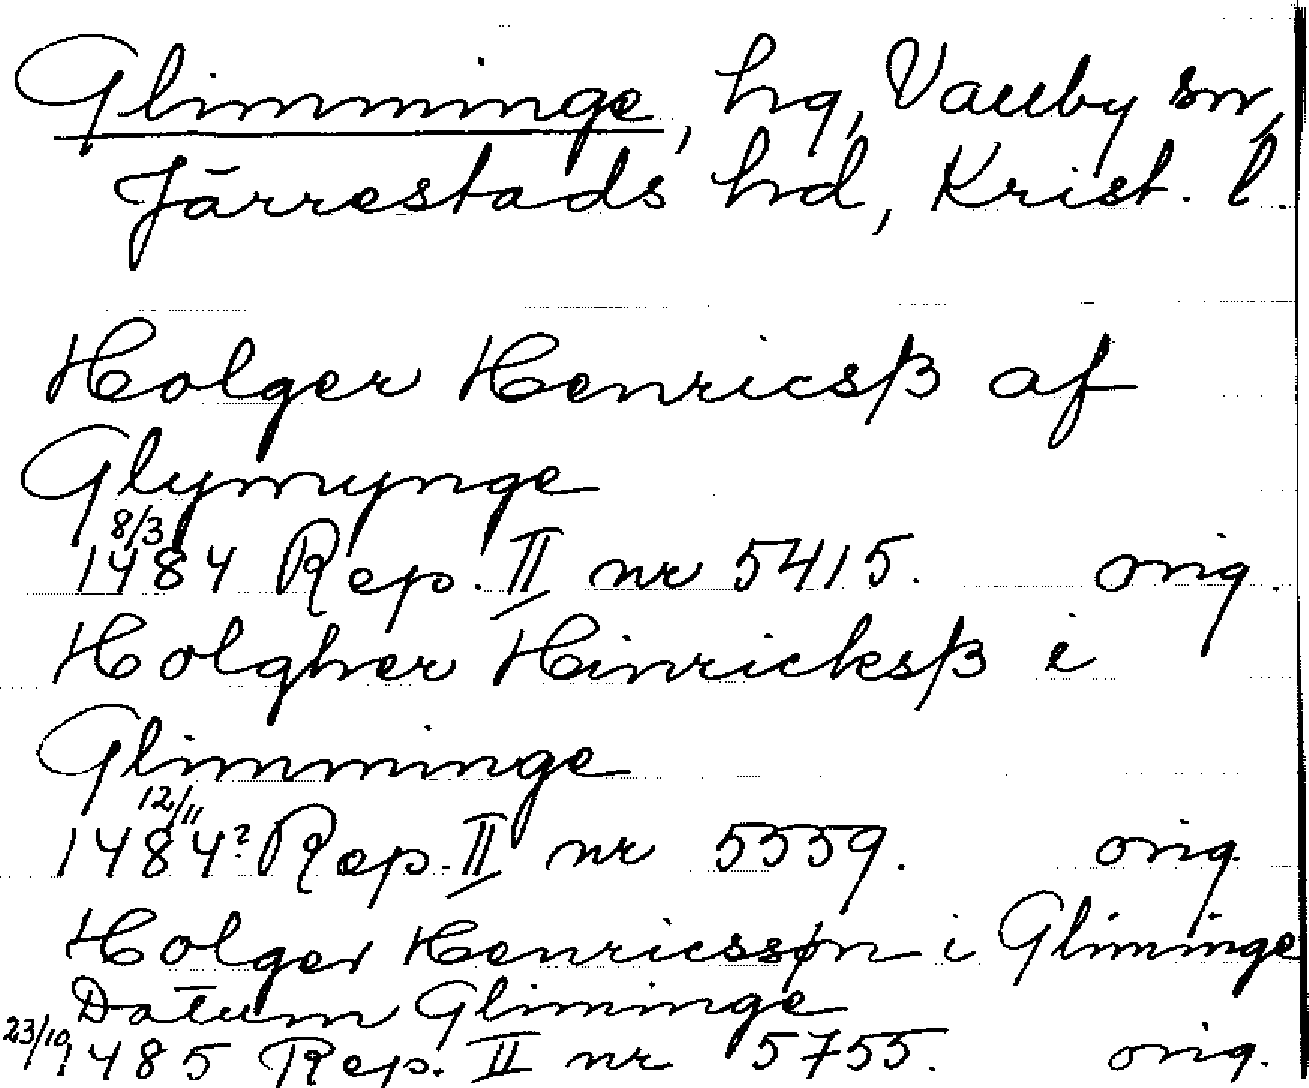 Glimminge, hg, Vallby sn,
Järrestads hd, Krist. l.
Holger Henricsß af
Glymynge
8/3
1484 Rep. II nr 5415. orig.
Holgher Hinricksß i
Glimminge
12/11
1484? Rep. II nr 5559. orig.
Holger Henricssøn i Gliminge
Datum Gliminge
23/10 1485 Rep. II nr 5755. orig.